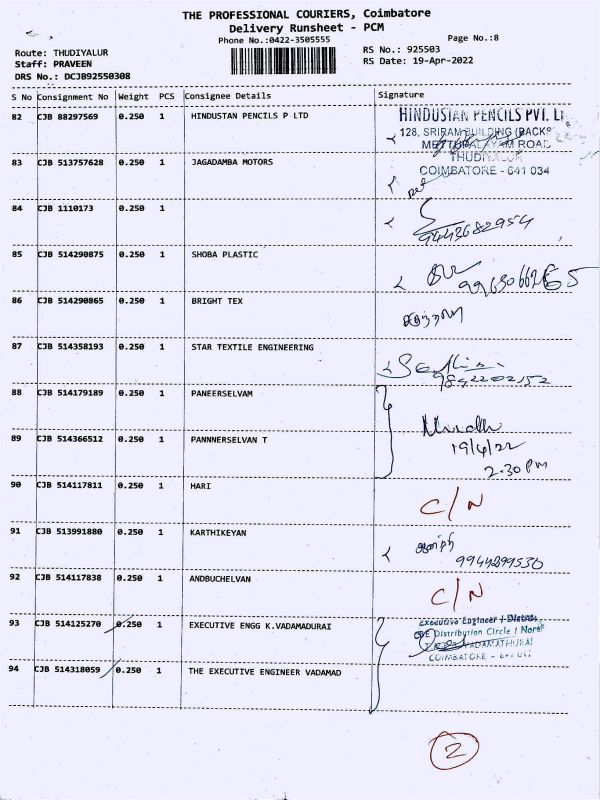 THE PROFESSIONAL COURIERS, Coimbatore
Delivery Runsheet - PCM
Phone No.:0422-3505555
Page No.:8
Route: THUDIYALUR
RS No.: 925503
Staff: PRAVEEN
RS Date: 19-Apr-2022
DRS No.: DCJB92550308
S No Consignment No Weight PCS Consignee Details Signature
82 CJB 88297569 0.250 1 HINDUSTAN PENCILS P LTD
HINDUSTAN PENCILS PVT. LT
128, SRIRAM BUILDING (BACK
METTUPALAYAM ROAD
THUDIYALUR
COIMBATORE - 641 034
83 CJB 513757628 0.250 1 JAGADAMBA MOTORS
84 CJB 1110173 0.250 1
9443682954
85 CJB 514290875 0.250 1 SHOBA PLASTIC
86 CJB 514290865 0.250 1 BRIGHT TEX
87 CJB 514358193 0.250 1 STAR TEXTILE ENGINEERING
9842202152
88 CJB 514179189 0.250 1 PANEERSELVAM
89 CJB 514366512 0.250 1 PANNNERSELVAN T
19/4/22
2.30 Pm
90 CJB 514117811 0.250 1 HARI
C/N
91 CJB 513991880 0.250 1 KARTHIKEYAN
9944299530
92 CJB 514117838 0.250 1 ANDBUCHELVAN
C/N
93 CJB 514125270 0.250 1 EXECUTIVE ENGG K.VADAMADURAI
Executive Engineer
Distribution Circle / Nort
VADAMATHURAI
COIMBATORE
94 CJB 514318059 0.250 1 THE EXECUTIVE ENGINEER VADAMAD
2